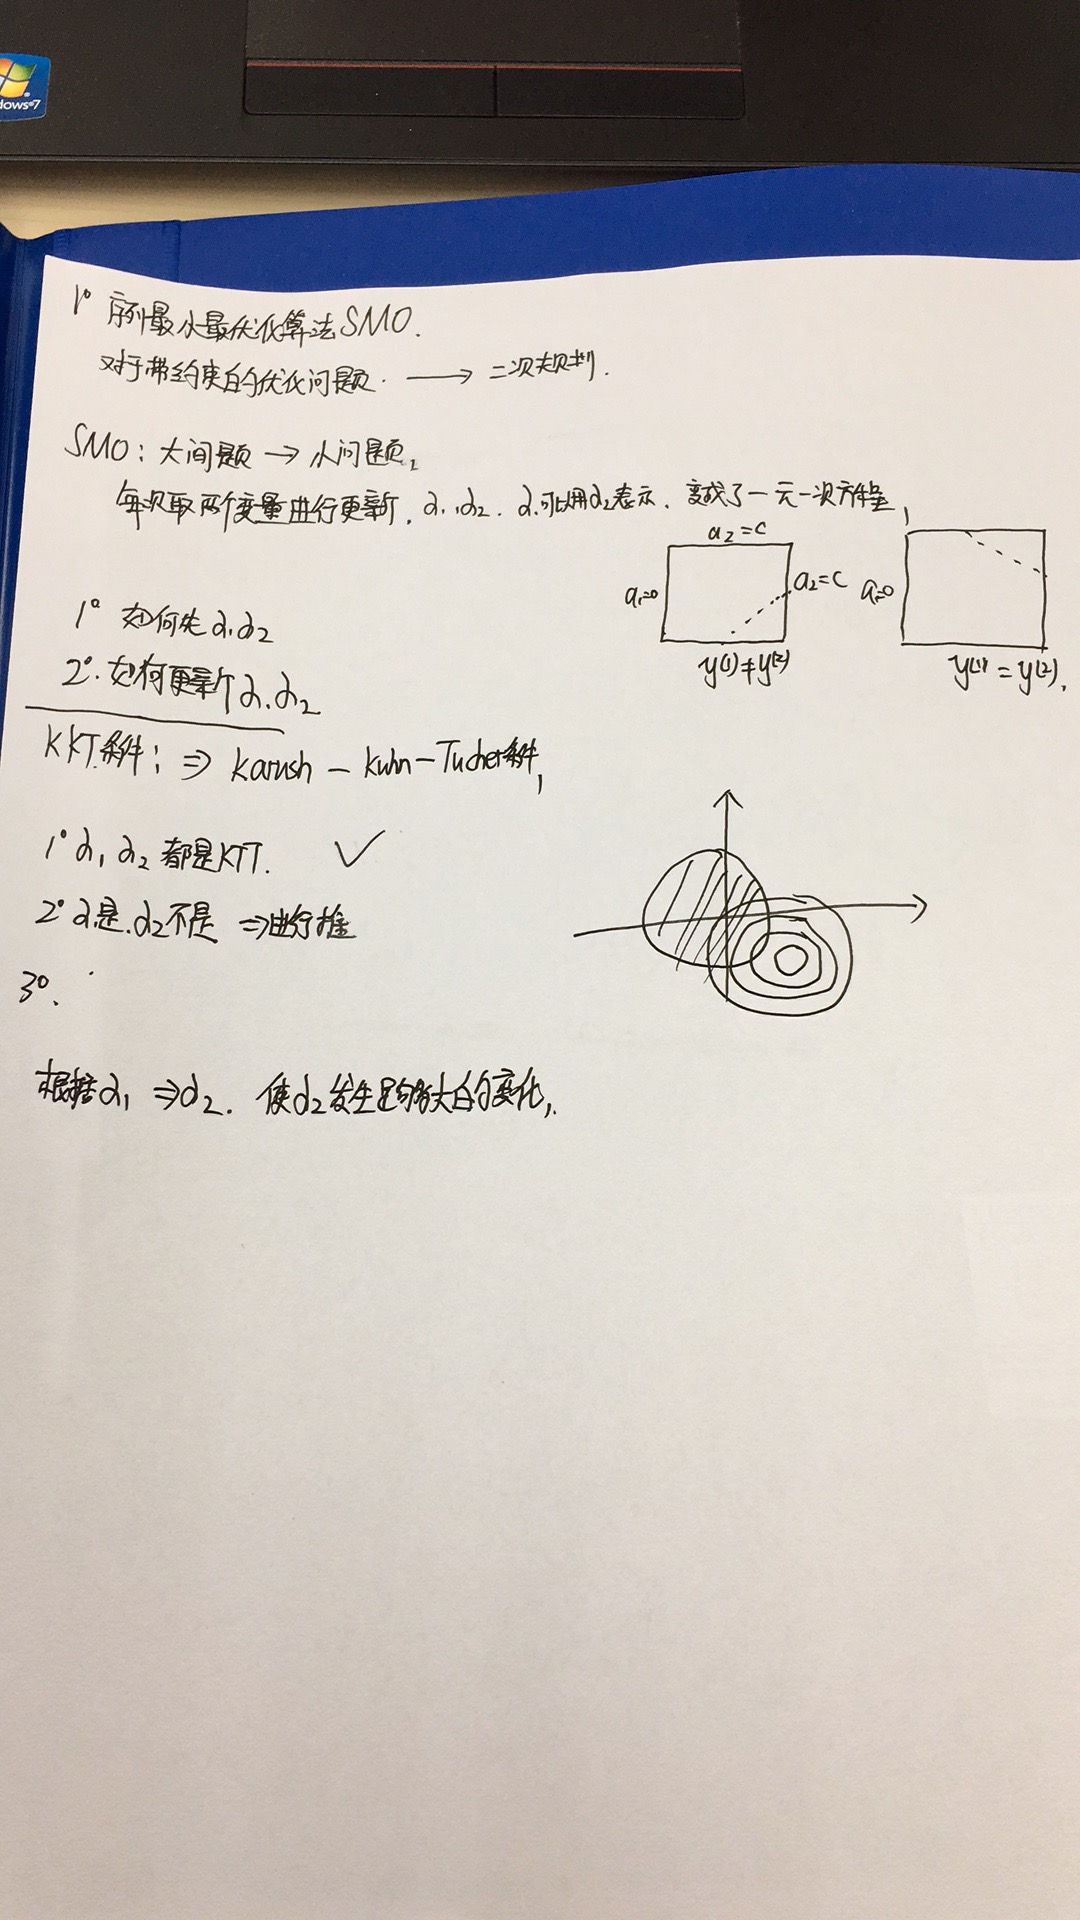 dows 7
1° 序列最小最优化算法SMO.
对于带约束的优化问题. → 二次规划.
SMO: 大问题 → 小问题,
每次取两个变量进行更新, α1,α2. α1可以用α2表示, 变成了一元一次方程,
a2=c
a1=0
a2=c
y(1)≠y(2)
a1=0
y(1)=y(2),
1° 如何选α1α2
2°. 如何更新α1.α2
KKT条件: ⇒ Karush - kuhn-Tucher条件,
1° α1, α2都是KTT. ✓
2° α1是.α2不是 ⇒进行推
3°.
根据α1 ⇒α2. 使α2发生足够大的变化,.